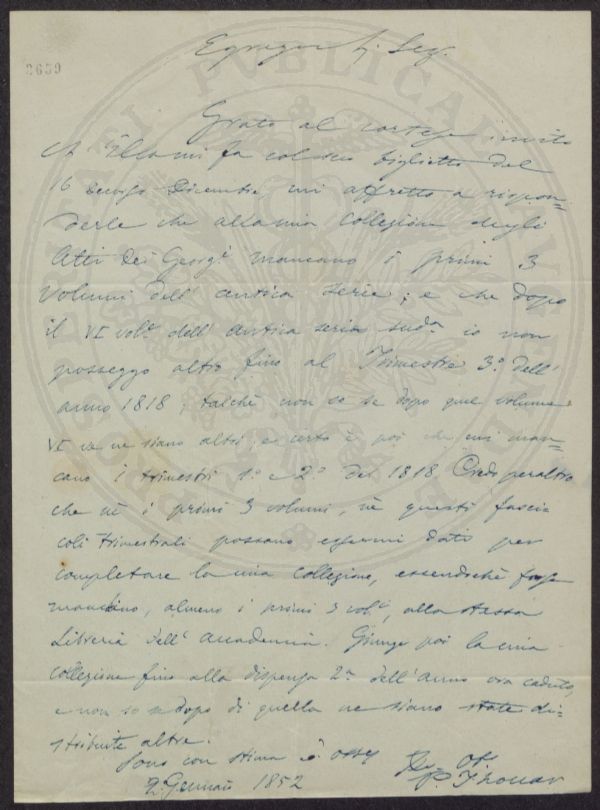 Egregio Sig. Seg.
2659
Grato al cortese invito
ch'Ella mi fa col suo biglietto del
16 Decembre mi affretto a rispon=
derle che alla mia Collezione degli
Atti de' Georgi mancano i primi 3
Volumi dell' antica serie; e che dopo
il VI vol. dell' antica serie sudª. io non
posseggo altro fino al Trimestre 3º. dell'
anno 1818; talchè non so se dopo quel volume
VI ve ne siano altri; e certo è poi che mi man=
cano i trimestri 1º e 2º del 1818. Credo peraltro
che nè i primi 3 volumi, nè questi fasci=
coli trimestrali possano essermi dati per
completare la mia Collezione, essendochè forse
mancano, almeno i primi 3 volˡ, alla stessa
Libreria dell' Accademia. Giunge poi la mia
collezione fino alla dispensa 2ª dell' anno ora caduto,
e non so se dopo di quella ne siano state di=
stribuite altre.
Sono con stima e oss
Dev. Ob.
2 Gennaio 1852
P. Thouar
PROSPERITATI PVBLICAE AVGENDAE